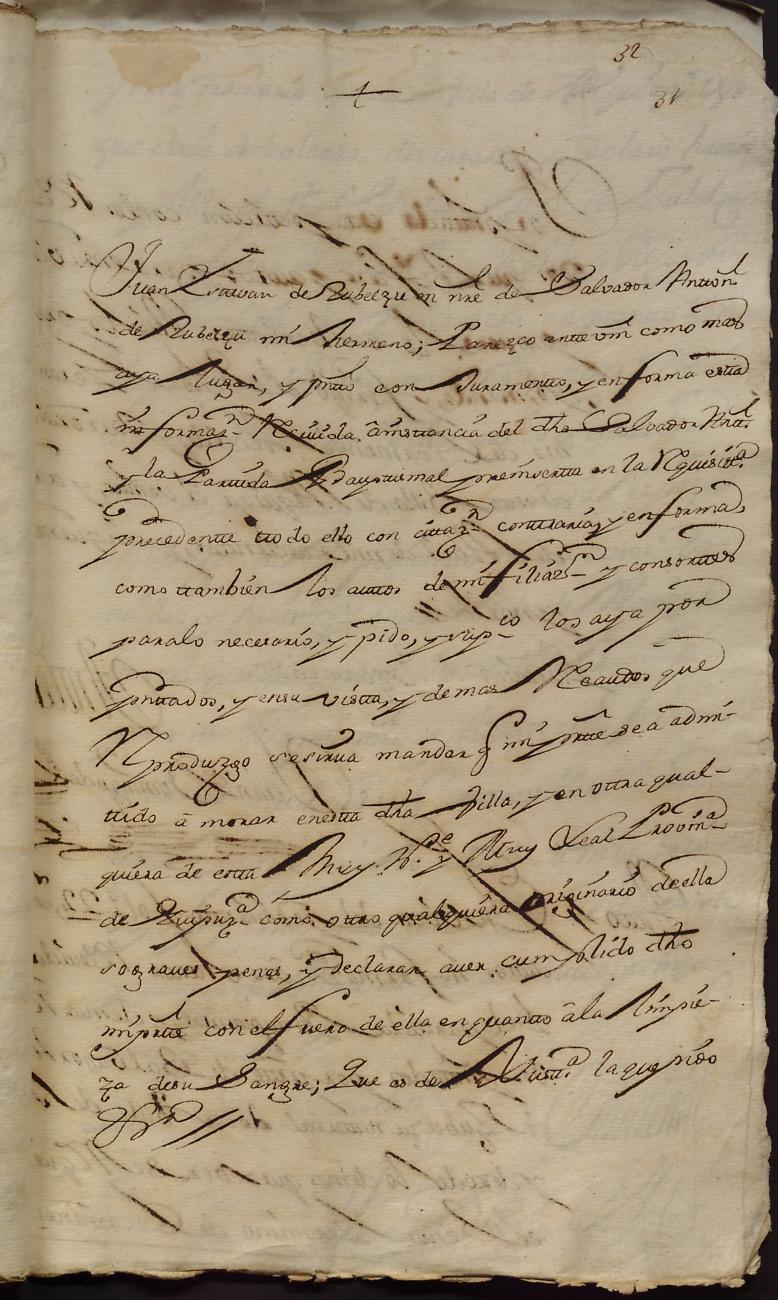 32
31
Juan Estevan de Zubelzu en nre de Salvador Anton
de Zubelzu mi hermano; Parezco ante vm como mas
aya lugar, y pnto con Juramento, y en forma esta
informazn Reciuida â instancia del dho Salvador Antt.
y la Partida Baptismal preinserta en la Requisita
precedente ttodo ello con cittazn contraria, y en forma,
como ttambien los auttos de mi filiazn y consorttes
para lo necesario, y pido, y supco los aya por
pnttados, y en su vistta, y demas Recaudos que
Reproduzgo se sirua mandar q mi partte sea admi-
ttido â morar en estta dha Villa, y en ottra qual-
quiera de estta Muy Ne y Muy Leal Prouina
de Guipuza como ottro qualquiera originario de ella
so graues penas, y declarar auer cumplido dho
mi partte con el fuero de ella en quantto â la limpie-
za de su Sangre; Que es de Justta la que pido